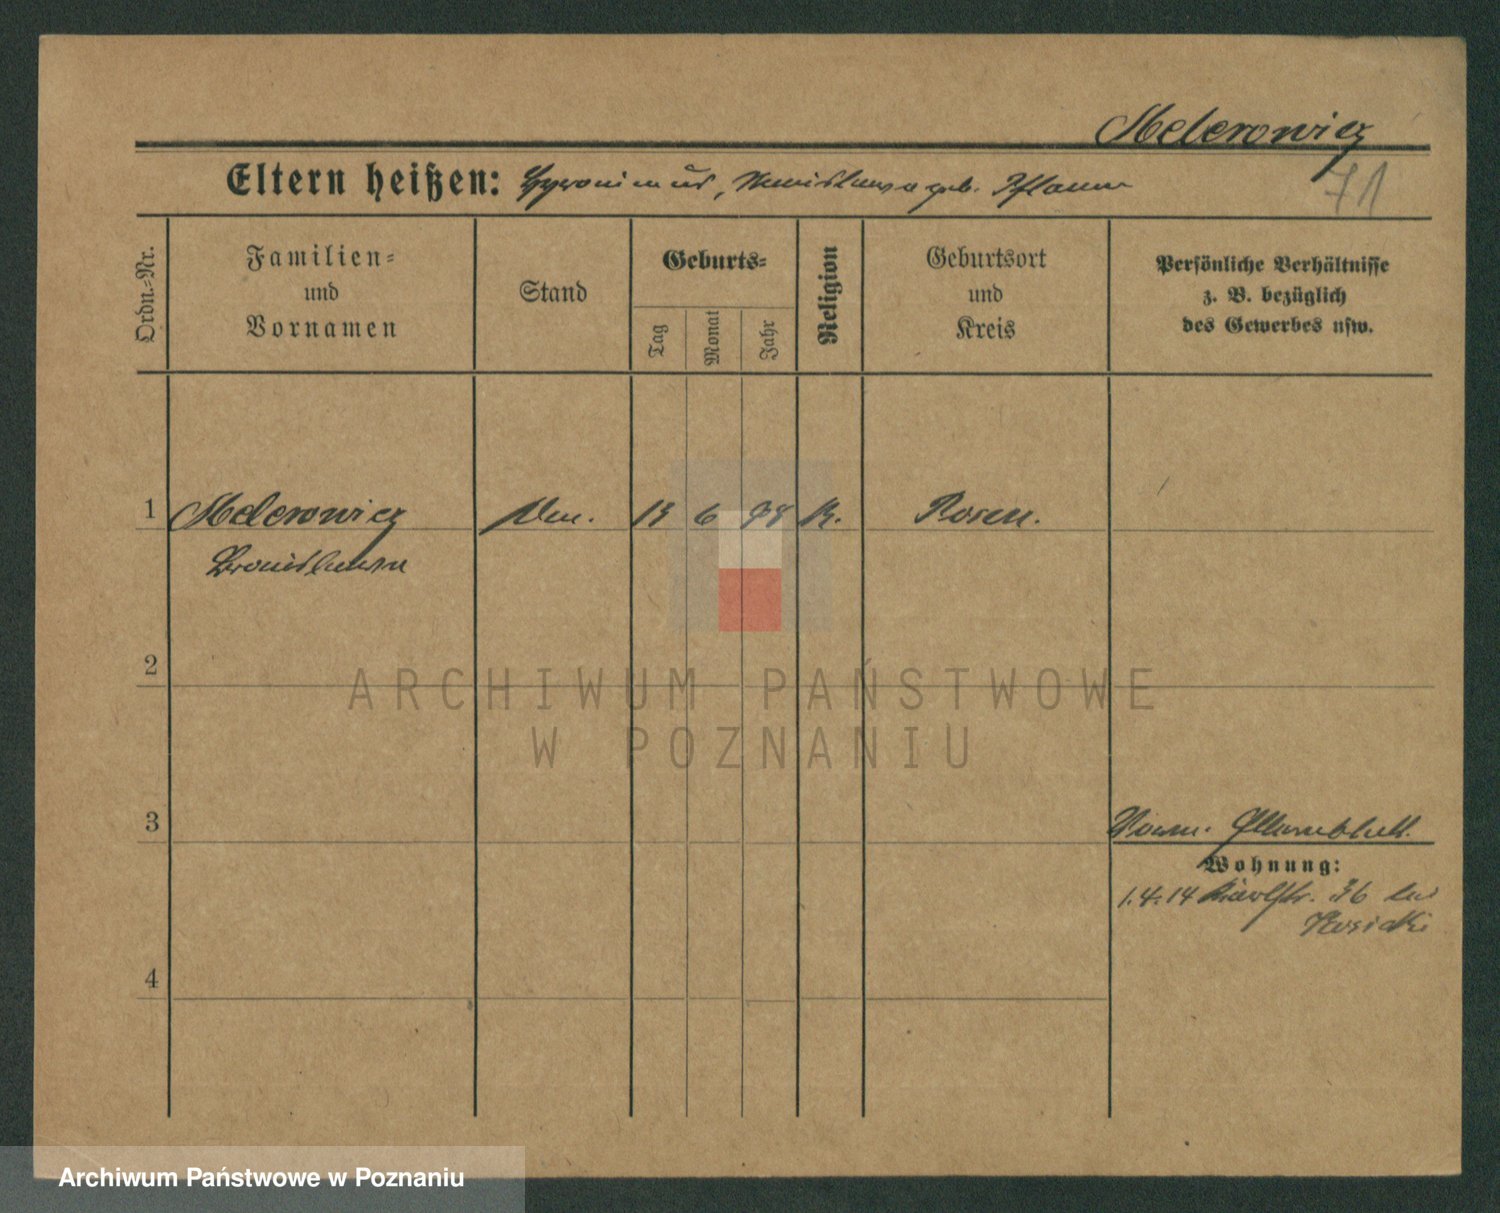 Melerowicz
71
Eltern heißen: Hyronimus, geb. Pflaum
Ordn.-Nr.
Familien-
und
Vornamen
Stand
Geburts-
Tag
Monat
Jahr
Religion
Geburtsort
und
Kreis
Persönliche Verhältnisse
z. B. bezüglich
des Gewerbes usw.
1 Melerowicz 6 98 K. Posen.
Bronislawa
2
ARCHIWUM PAŃSTWOWE
W POZNANIU
3
Wohnung:
1.4.14 36 bei
4
Archiwum Państwowe w Poznaniu